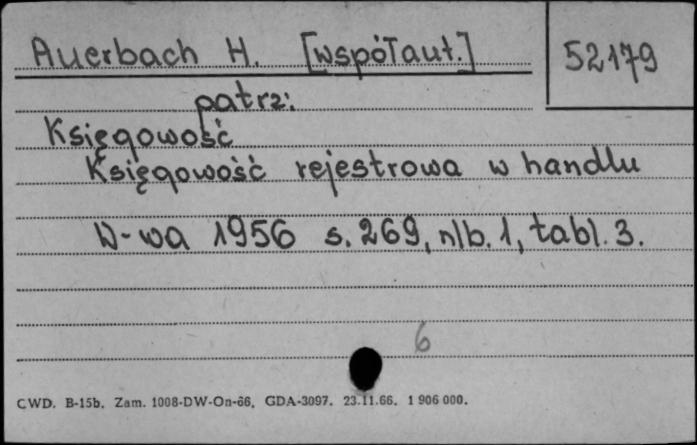 Auerbach H. [współaut.]
52179
patrz:
Księgowość
Księgowość rejestrowa w handlu
W-wa 1956 s. 269, nlb. 1, tabl. 3.
6
CWD. B-15b. Zam. 1008-DW-On-66. GDA-3097. 23.11.66. 1 906 000.